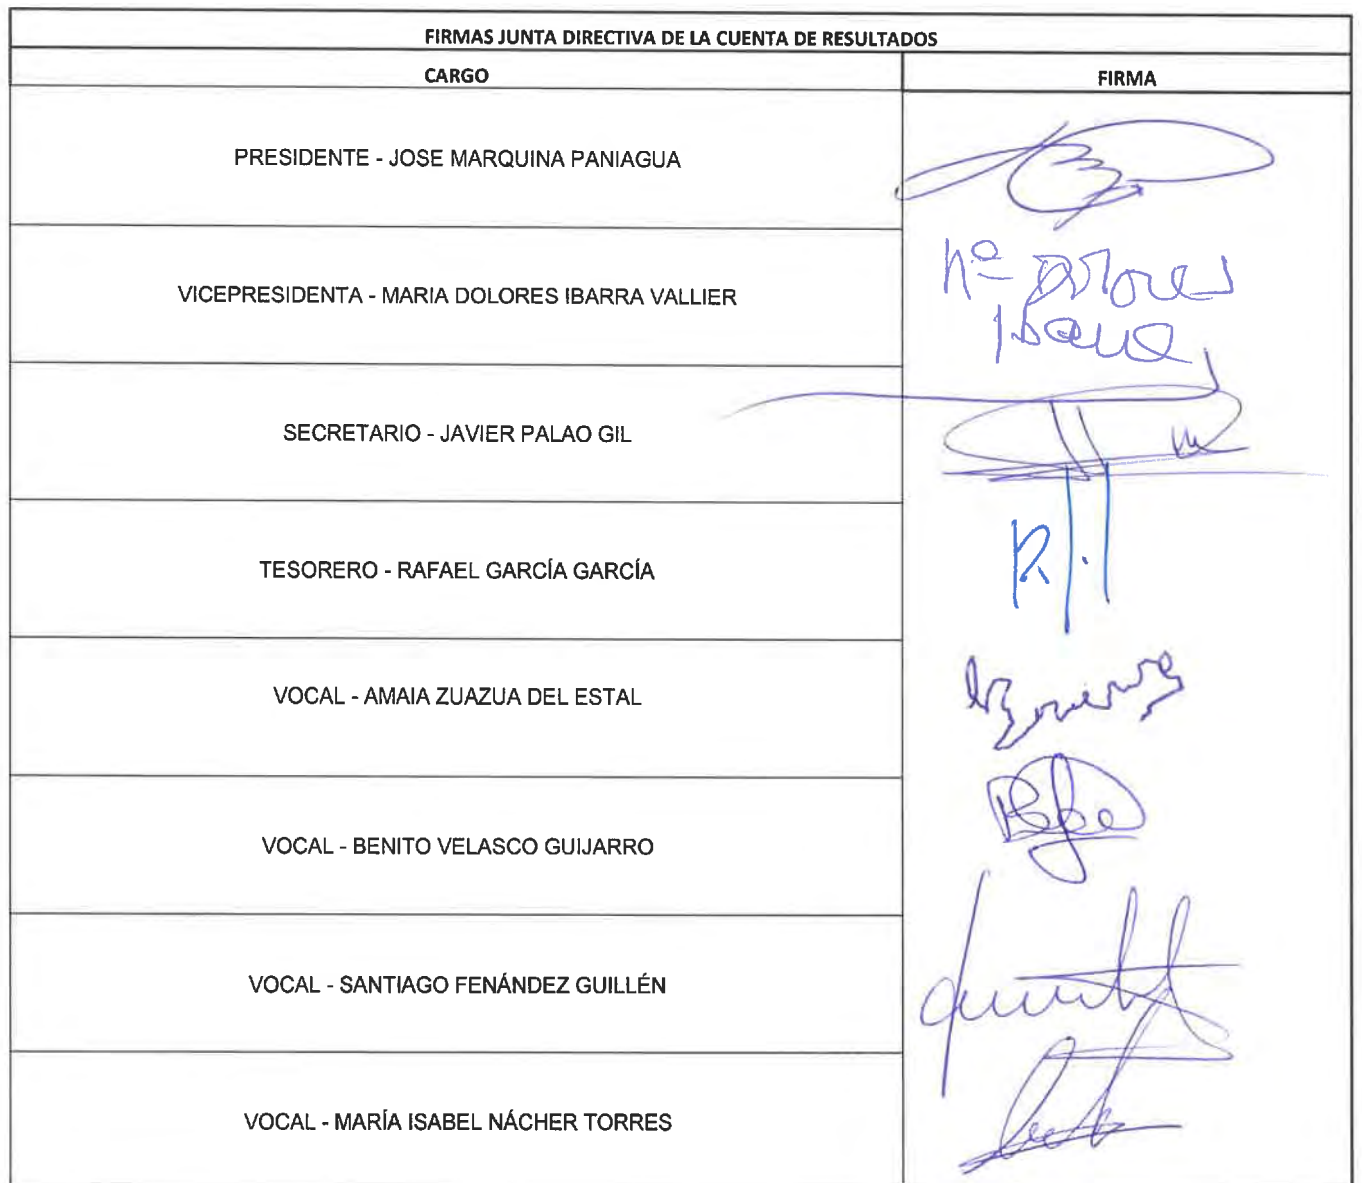 FIRMAS JUNTA DIRECTIVA DE LA CUENTA DE RESULTADOS
CARGO FIRMA
PRESIDENTE - JOSE MARQUINA PANIAGUA
VICEPRESIDENTA - MARIA DOLORES IBARRA VALLIER
Mª Dolores
Ibarra
SECRETARIO - JAVIER PALAO GIL
TESORERO - RAFAEL GARCÍA GARCÍA
VOCAL - AMAIA ZUAZUA DEL ESTAL
VOCAL - BENITO VELASCO GUIJARRO
VOCAL - SANTIAGO FENÁNDEZ GUILLÉN
VOCAL - MARÍA ISABEL NÁCHER TORRES